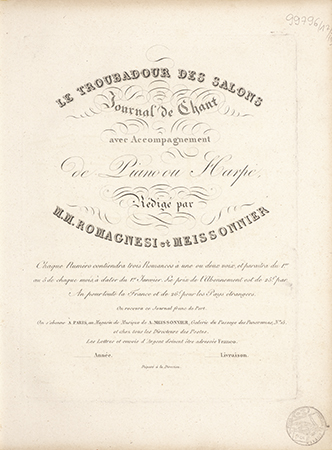 99796/12
LE TROUBADOUR DES SALONS
Journal de Chant
avec Accompagnement
de Piano ou Harpe,
Rédigé par
M.M. ROMAGNESI et MEISSONNIER
Chaque Numéro contiendra trois Romances à une ou deux voix, et paraîtra du 1er
au 5 de chaque mois, à dater du 1er Janvier. Le prix de l'Abonnement est de 25f par
An pour toute la France et de 26f pour les Pays étrangers.
On recevra ce Journal franc de Port.
On s'abonne A PARIS, au Magasin de Musique de A. MEISSONNIER, Galerie du Passage des Panoramas, No 15
et chez tous les Directeurs des Postes.
Les Lettres et envois d'Argent doivent être adressés franco.
Année. Livraison.
Déposé à la Direction